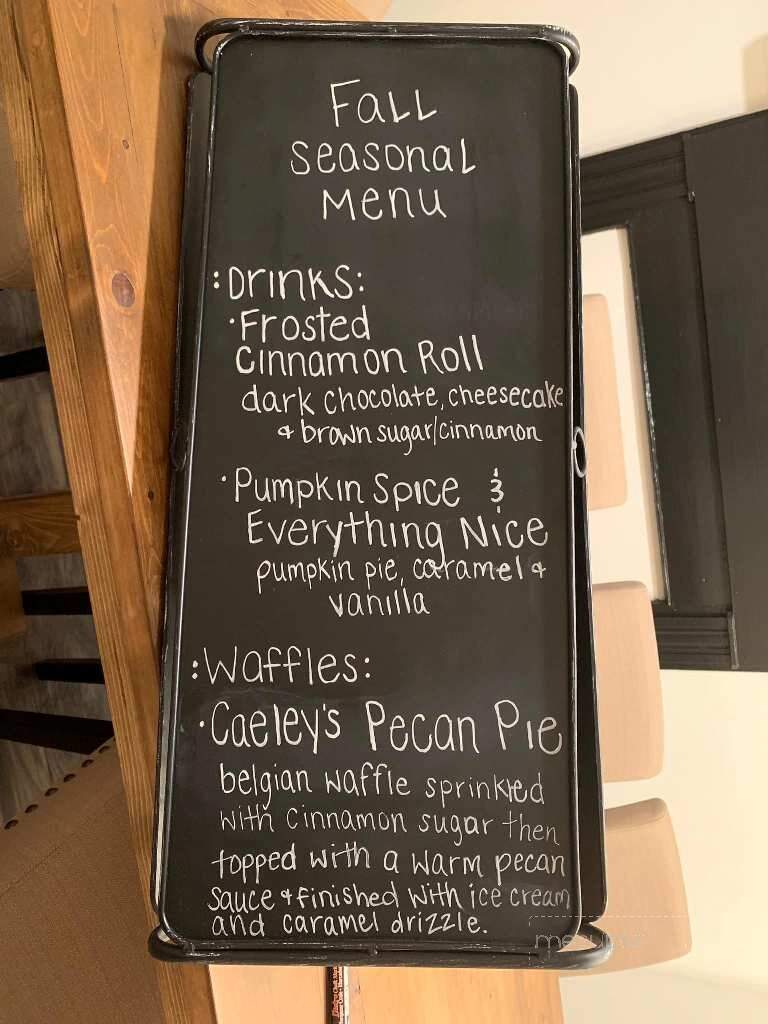 Fall
Seasonal
Menu
:Drinks:
·Frosted
Cinnamon Roll
dark chocolate, cheesecake
& brown sugar/cinnamon
·Pumpkin Spice &
Everything Nice
pumpkin pie, caramel &
vanilla
:Waffles:
·Caeley's Pecan Pie
belgian waffle sprinkled
with cinnamon sugar then
topped with a warm pecan
sauce & finished with ice cream
and caramel drizzle.